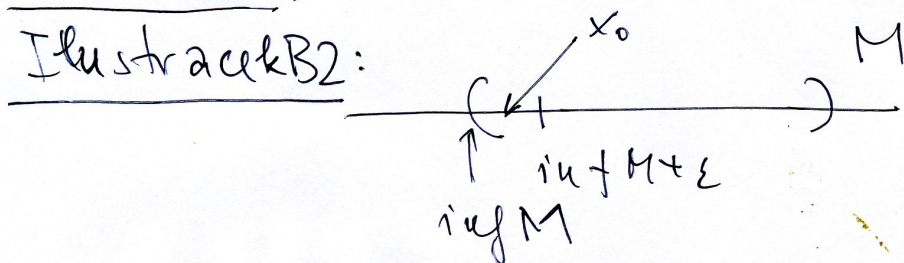 Ilustrace k B2:
x₀
M
inf M + ε
inf M